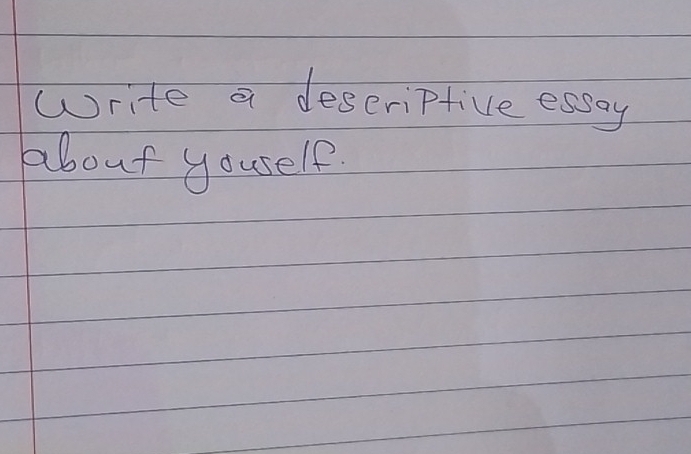 Write a descriptive essay
about youself.